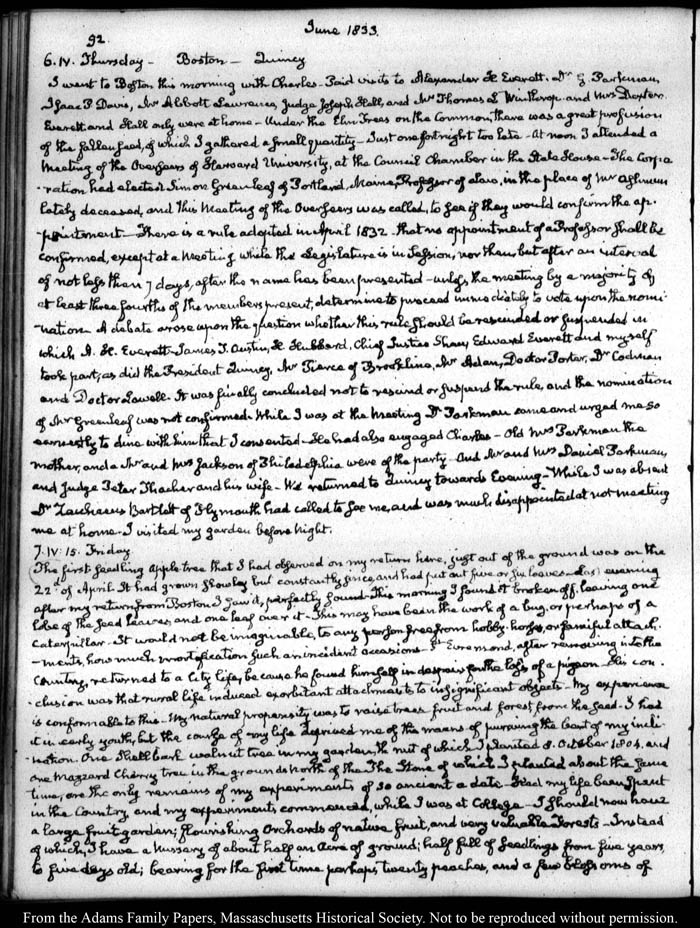 92.
June 1833.
6. IV. Thursday - Boston - Quincy
I went to Boston this morning with Charles - Paid visits to Alexander H. Everett. Dr. G. Parkman,
Isaac P. Davis, Mr Abbott Lawrence, Judge Joseph Hall, and Mr Thomas L Winthrop - and Mrs Dexter.
Everett and Hall only were at home - Under the Elm Trees on the Common, there was a great profusion
of the fallen seed, of which I gathered a small quantity - Just one fortnight too late - At noon I attended a
Meeting of the Overseers of Harvard University, at the Council Chamber in the State House - The Corpo
-ration had elected Simon Greenleaf of Portland, Maine, Professor of Law, in the place of Mr Ashmun
lately deceased, and this Meeting of the Overseers was called, to see if they would confirm the ap-
-pointment - There is a rule adopted in April 1832. that no appointment of a Professor shall be
confirmed, except at a Meeting while the Legislature is in Session, nor then but after an interval
of not less than 7 days, after the name has been presented - unless the meeting by a majority of
at least three fourths of the members present, determine to proceed immediately to vote upon the nomi-
-nation. A debate arose upon the question whether this rule should be rescinded or suspended in
which A. H. Everett, James T. Austin, H. Hubbard, Chief Justice Shaw, Edward Everett and myself
took part; as did the President Quincy, Mr Pierce of Brookline, Mr Adan, Doctor Porter, Dr Codman
and Doctor Lowell. It was finally concluded not to rescind or suspend the rule, and the nomination
of Mr Greenleaf was not confirmed. While I was at the Meeting Dr Parkman came and urged me so
earnestly to dine with him that I consented - He had also engaged Charles - Old Mrs Parkman the
mother, and a Mr and Mrs Jackson of Philadelphia were of the party - And Mr and Mrs Daniel Parkman,
and Judge Peter Thacher and his wife - We returned to Quincy towards Evening - While I was absent
Dr Zaccheus Bartlett of Plymouth had called to see me, and was much disappointed at not meeting
me at home. I visited my garden before Night.
7. IV. 15. Friday
The first seedling apple tree that I had observed on my return here, just out of the ground was on the
22d of April. It had grown slowly but constantly since, and had put out five or six leaves - Last evening
after my return from Boston I saw it, perfectly sound - This morning I found it broken off, leaving one
lobe of the seed leaves and one leaf over it - This may have been the work of a bug, or perhaps of a
caterpillar - It would not be imaginable, to any person free from hobby-horse, or fanciful attach
-ments, how much mortification such an incident occasions - St Evremond, after removing into the
Country, returned to a City life, because he found himself in despair for the loss of a pigeon - His con-
-clusion was that rural life induced exorbitant attachments to insignificant objects - My experience
is conformable to this - My natural propensity was to raise trees fruit and forest from the seed - I had
it in early youth, but the course of my life deprived me of the means of pursuing the bent of my incli
-nation. One Shellbark walnut tree in my garden, the nut of which I planted 8. October 1804. and
one Mazzard Cherry tree in the grounds North of the House, the Stone of which I planted about the same
time, are the only remains of my experiments of so ancient a date - Had my life been spent
in the Country, and my experiments commenced, while I was at College - I should now have
a large fruit garden; flourishing Orchards of native fruit, and very valuable Forests - Instead
of which, I have a Nursery of about half an Acre of ground; half full of seedlings from five years
to five days old; bearing for the first time perhaps twenty peaches, and a few blossoms of
From the Adams Family Papers, Massachusetts Historical Society. Not to be reproduced without permission.